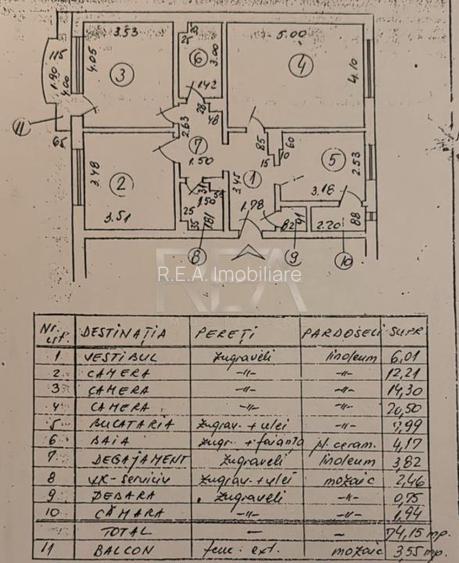 3.53
5.00
25
6
3.00
115
4.05
1.90
4.00
3
4
4.10
1.42
28
48
11
65
2.63
7
85
60
15
10
5
2.53
1.50
3.48
2
3.45
1
3.16
3.51
25
1.50
35
181
1.78
82
91
2.20
88
8
9
10
R.E.A. Imobiliare
REA
Nr. crt. DESTINAȚIA PEREȚI PARDOSELI SUPR.
1 VESTIBUL zugraveli linoleum 6,01
2 CAMERA -"- -"- 12,21
3 CAMERA -"- -"- 14,30
4 CAMERA -"- -"- 20,50
5 BUCATARIA zugrav. + ulei -"- 7,99
6 BAIA zugr. + faianta pl. ceram. 4,17
7 DEGAJAMENT zugraveli linoleum 3,82
8 WC-serviciu zugrav. + ulei mozaic 2,46
9 DEBARA zugraveli -"- 0,75
10 CĂMARA -"- -"- 1,94
TOTAL — — 74,15 mp.
11 BALCON tenc. ext. mozaic 3,55 mp.